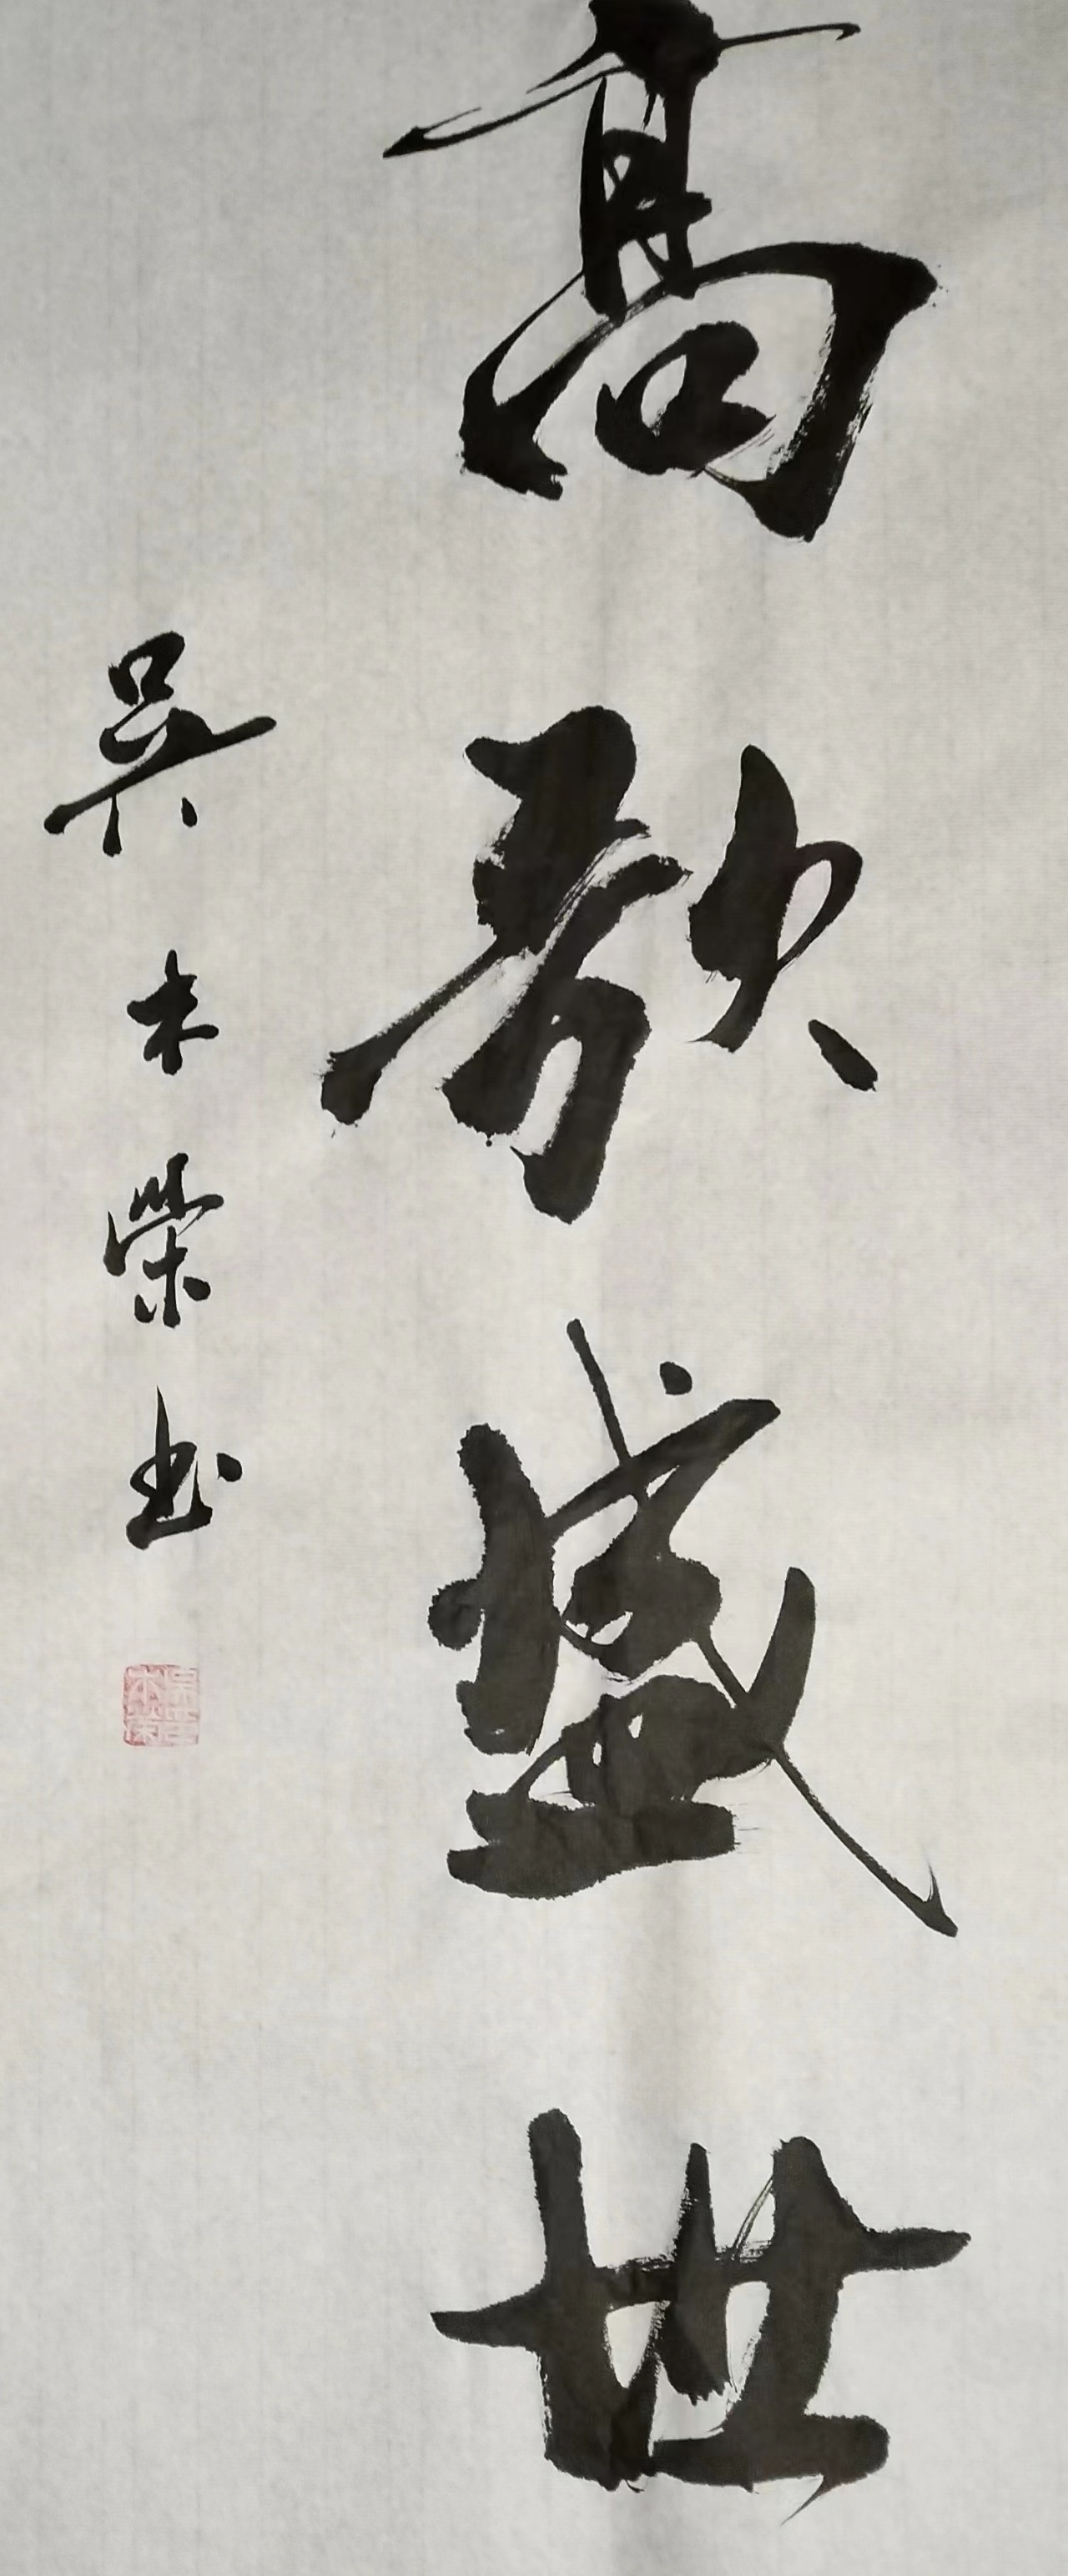 高歌盛世
吴木荣书